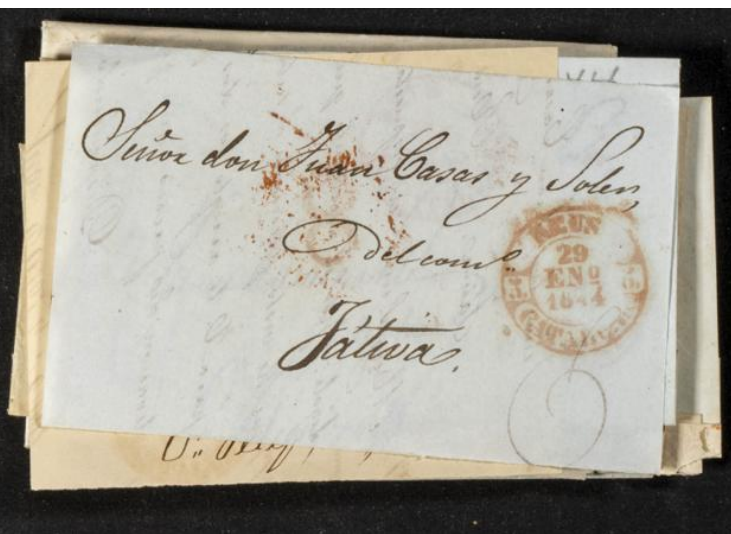 Señor don Juan Casas y Soler,
Del comº
Játiva.
REUS
29
ENº
1844
5
5
CATALUÑA